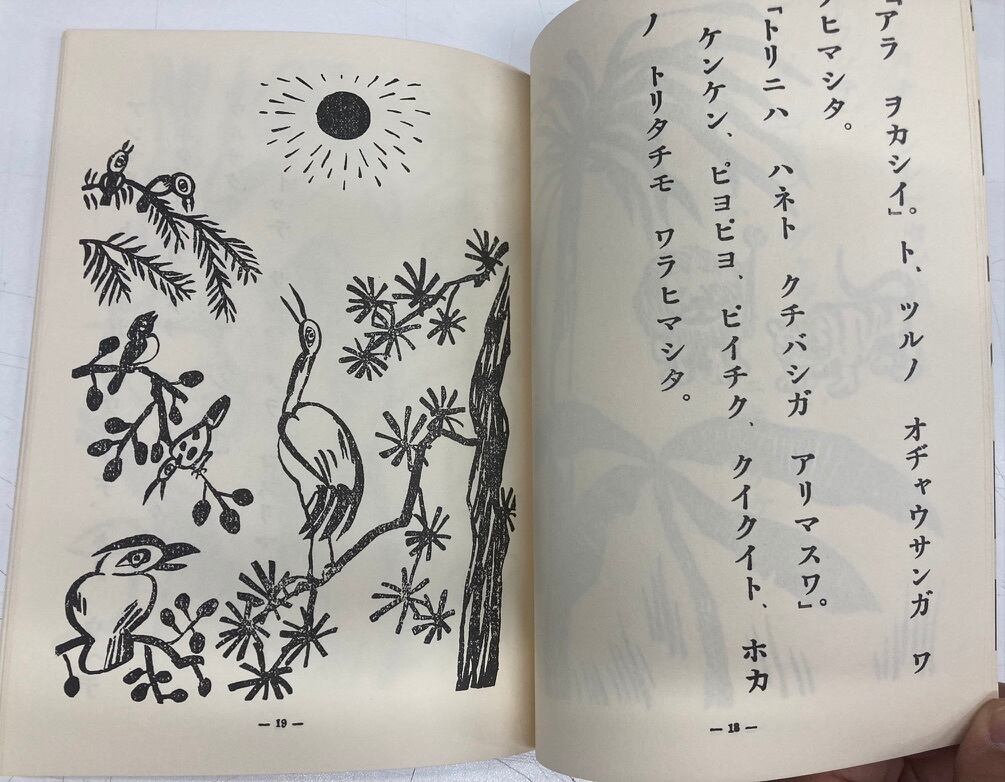 「アラ ヲカシイ」。ト、ツルノ オヂャウサンガ ワ
ラヒマシタ。
「トリニハ ハネト クチバシガ アリマスワ」。
ケンケン、ピヨピヨ、ピイチク、クイクイト、 ホカ
ノ トリタチモ ワラヒマシタ。
— 18 —
— 19 —